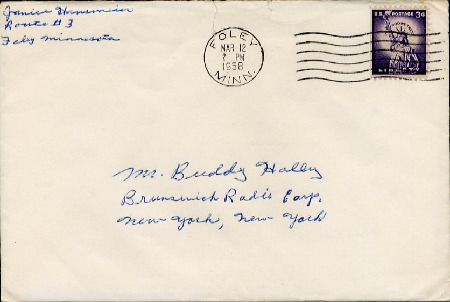 Janice Hansmeier
Route #3
Foley Minnesota
FOLEY
MAR 12
PM
1958
MINN.
U.S. POSTAGE 3¢
LIBERTY
Mr. Buddy Holley
Brunswick Radio Corp.
New York, New York